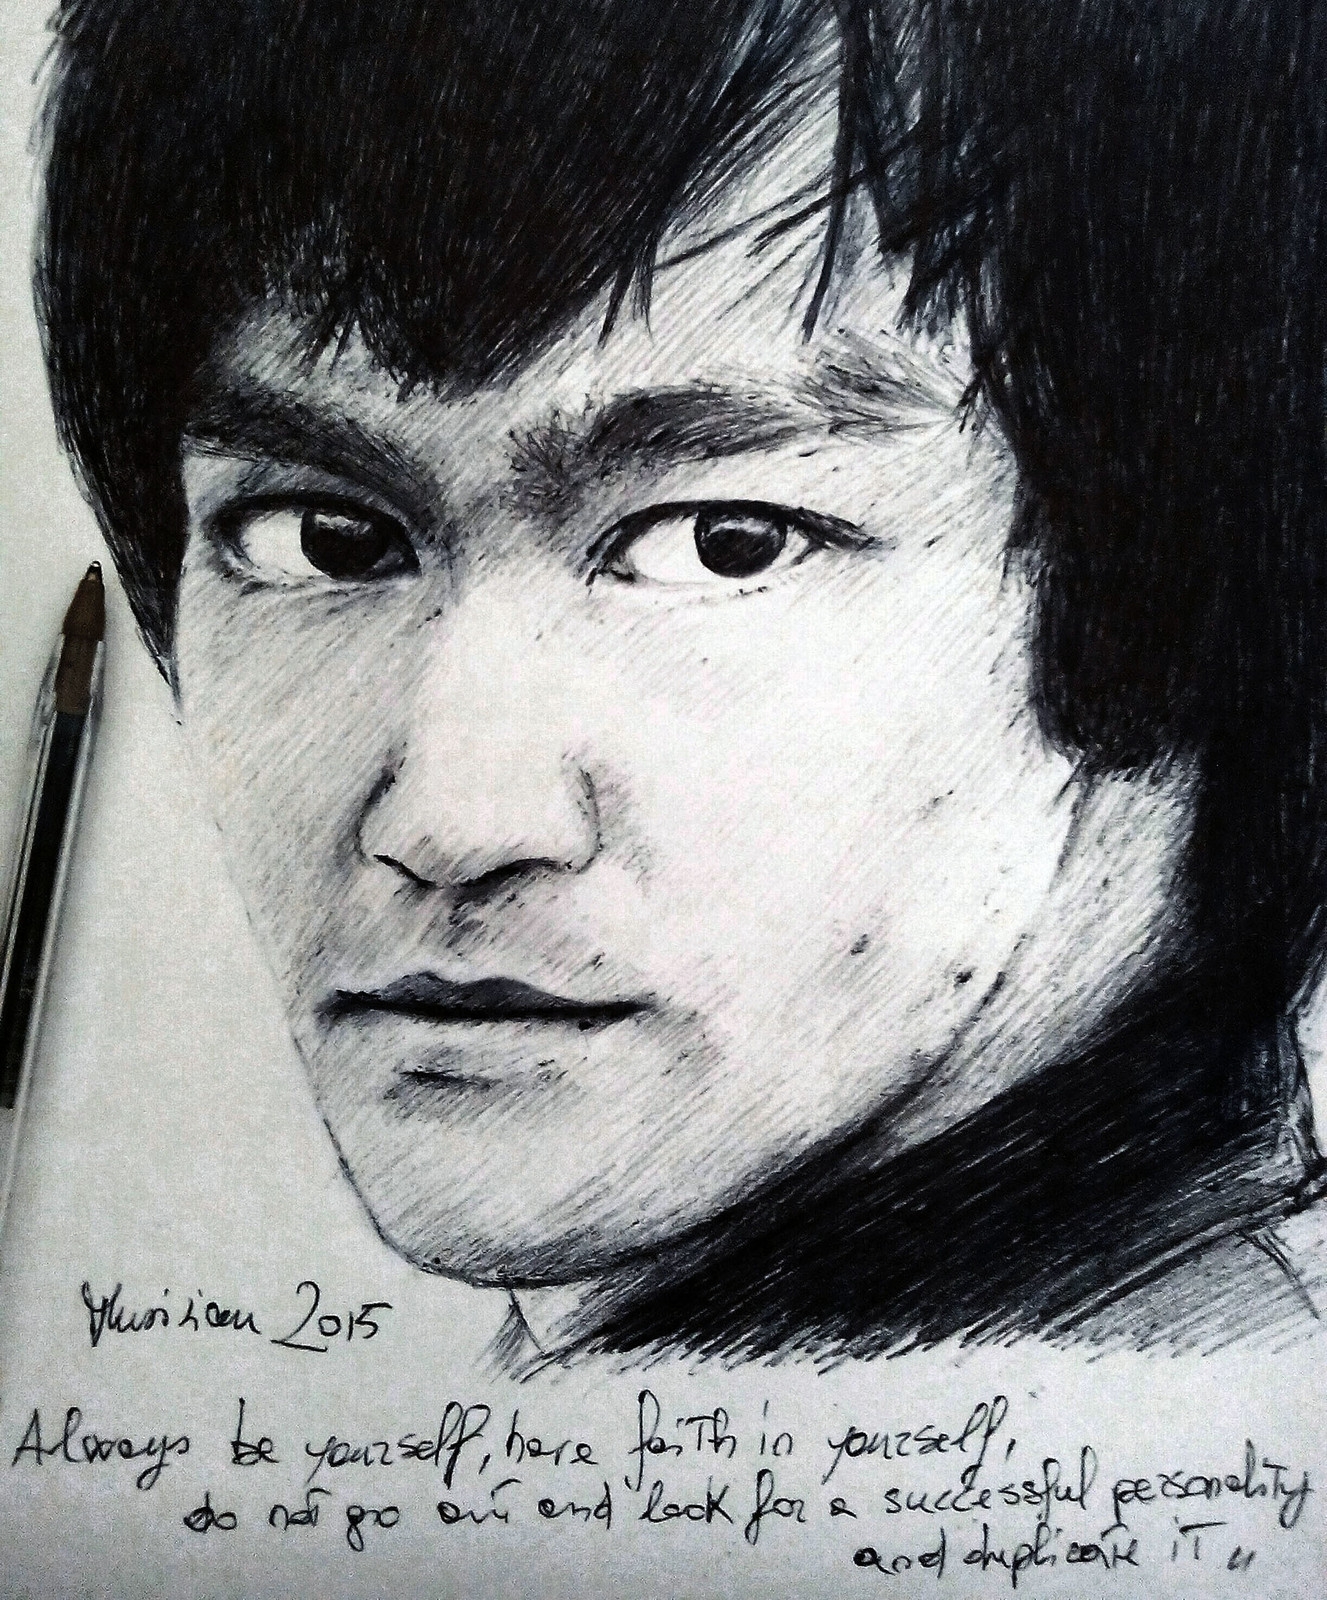 2015
Always be yourself, have faith in yourself,
do not go out and look for a successful personality
and duplicate it "